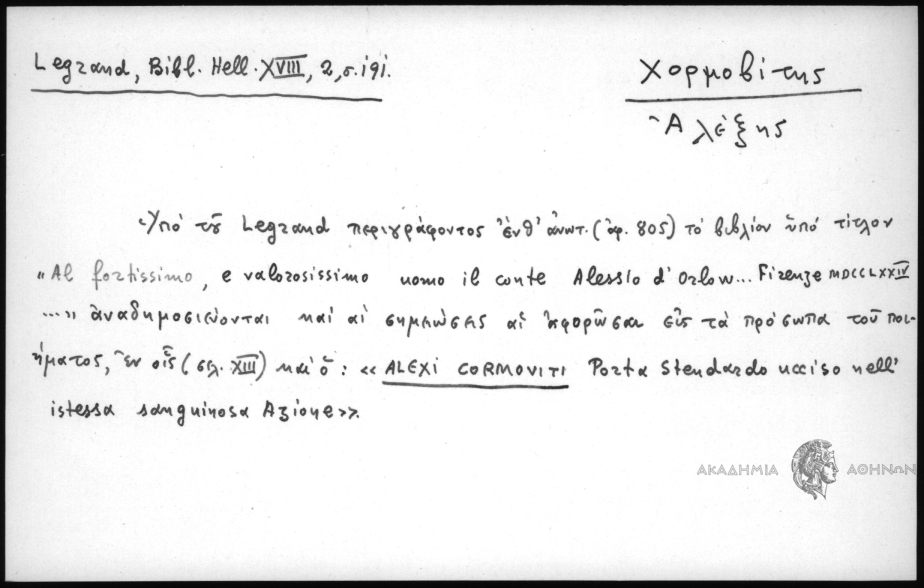 Legrand, Bibl. Hell. XVIII, 2, σ. 191.
Χορμοβίτης
Ἀλέξης
Ὑπό τοῦ Legrand περιγράφοντος ἔνθ' ἀνωτ. (ἀρ. 805) τό βιβλίον ὑπό τίτλον
"Al fortissimo, e valorosissimo uomo il conte Alessio d'Orlow... Firenze MDCCLXXIV
..." ἀναδημοσιεύονται καί αἱ σημειώσεις αἱ ἀφορῶσαι εἰς τά πρόσωπα τοῦ ποι-
ήματος, ἐν οἷς (σελ. XIII) καί ὁ: «ALEXI CORMOVITI Porta Stendardo ucciso nell'
istessa sanguinosa Azione».
ΑΚΑΔΗΜΙΑ ΑΘΗΝΩΝ